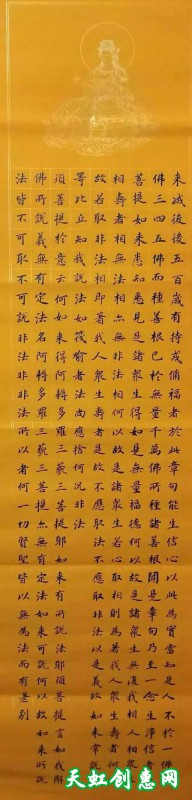 来滅後後五百歲有持戒脩福者於此章句能生信心以此為實當知是人不於一佛二
佛三四五佛而種善根已於無量千萬佛所種諸善根聞是章句乃至一念生淨信者須
菩提如来悉知悉見是諸衆生得如是無量福德何以故是諸衆生無復我相人相衆生
相壽者相無法相亦無非法相何以故是諸衆生若心取相則為著我人衆生壽者何以
故若取非法相即著我人衆生壽者是故不應取法不應取非法以是義故如来常説汝
等比丘知我説法如筏喻者法尚應捨何況非法
須菩提於意云何如来得阿耨多羅三藐三菩提耶如来有所説法耶須菩提言如我解
佛所説義無有定法名阿耨多羅三藐三菩提亦無有定法如来可説何以故如来所説
法皆不可取不可説非法非非法所以者何一切賢聖皆以無為法而有差別
天虹创惠网